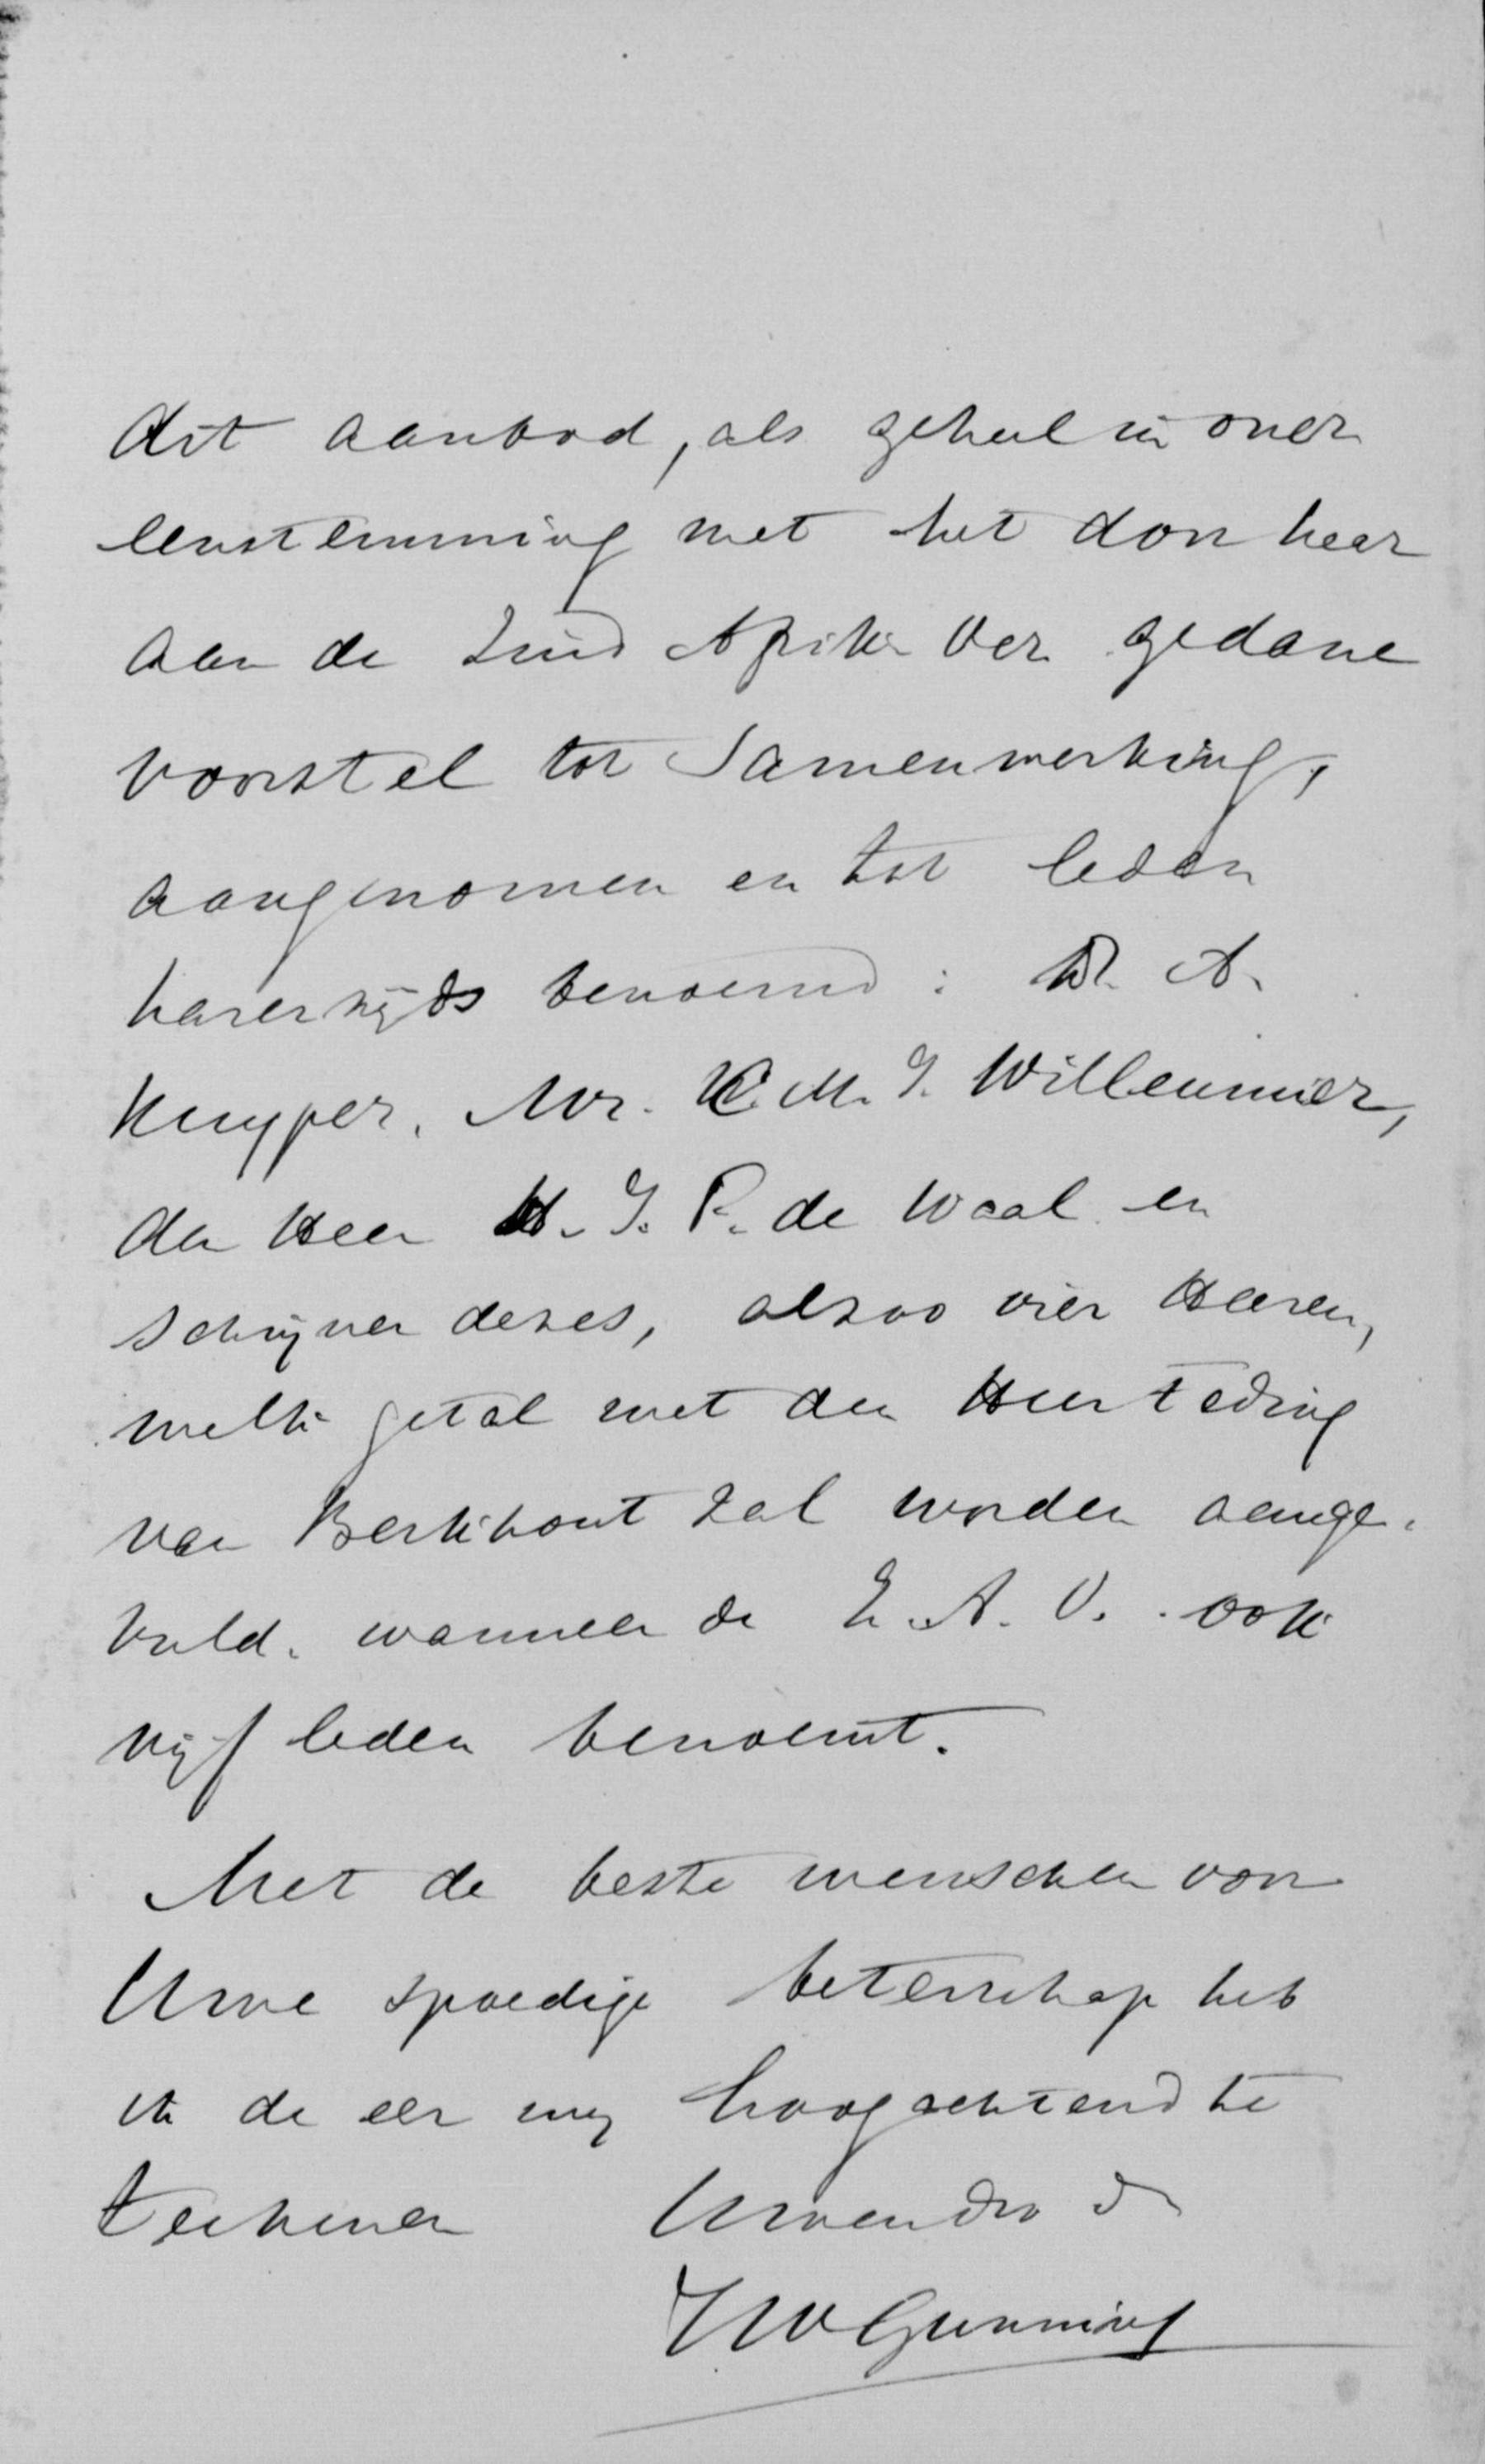 dit aanbod, als geheel in over
eenstemming met het door haar
aan de Zuid Afrik Ver gedane
voorstel tot Samenwerking,
aangenomen en tot leden
harerzijds benoemd: Dr. A.
Kuyper, Mr. C. M. J. Willeumier,
den Heer H. J. P. de Waal en
schrijver dezes, alzoo vier Heeren,
welk getal met den Heer Teding
van Berkhout zal worden aange-
vuld. wanneer de Z. A. V. ook
vijf leden benoemt.
Met de beste wenschen voor
Uwe spoedige beterschap heb
ik de eer mij hoogachtend te
teekenen Uwendw dr
JW Gunning